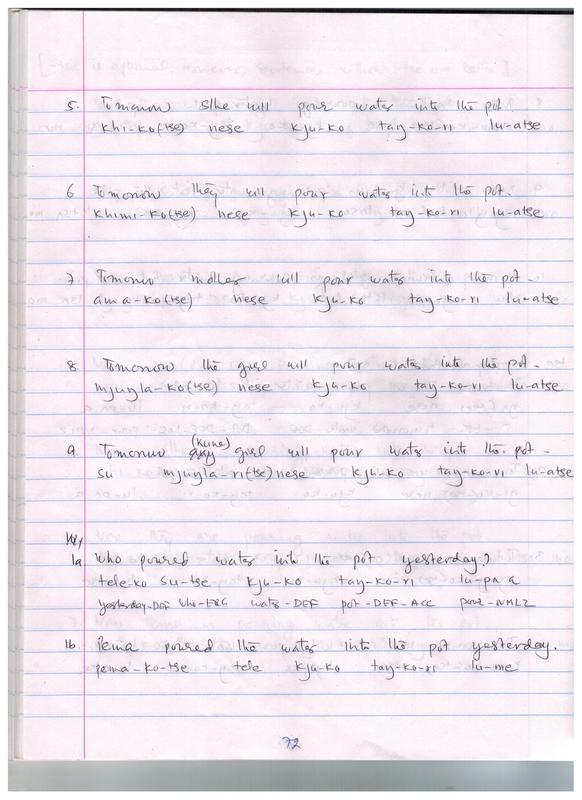 5. Tomorrow S/he will pour water into the pot
khi-ko(tse) nese kju-ko tay-ko-ri lu-atse
6 Tomorrow they will pour water into the pot.
khimi-ko(tse) nese kju-ko tay-ko-ri lu-atse
7. Tomorrow mother will pour water into the pot-
ama-ko(tse) nese kju-ko tay-ko-ri lu-atse
8. Tomorrow the girl will pour water into the pot-
mjuyla-ko(tse) nese kju-ko tay-ko-ri lu-atse
(kune)
9. Tomorrow girl will pour water into the pot-
su mjuyla-ri(tse) nese kju-ko tay-ko-ri lu-atse
1a who poured water into the pot yesterday?
tele-ko su-tse kju-ko tay-ko-ri lu-pa
yesterday-DEF who-ERG water-DEF pot-DEF-ACC pour-NMLZ
1b. Pema poured the water into the pot yesterday.
pema-ko-tse tele kju-ko tay-ko-ri lu-me
72